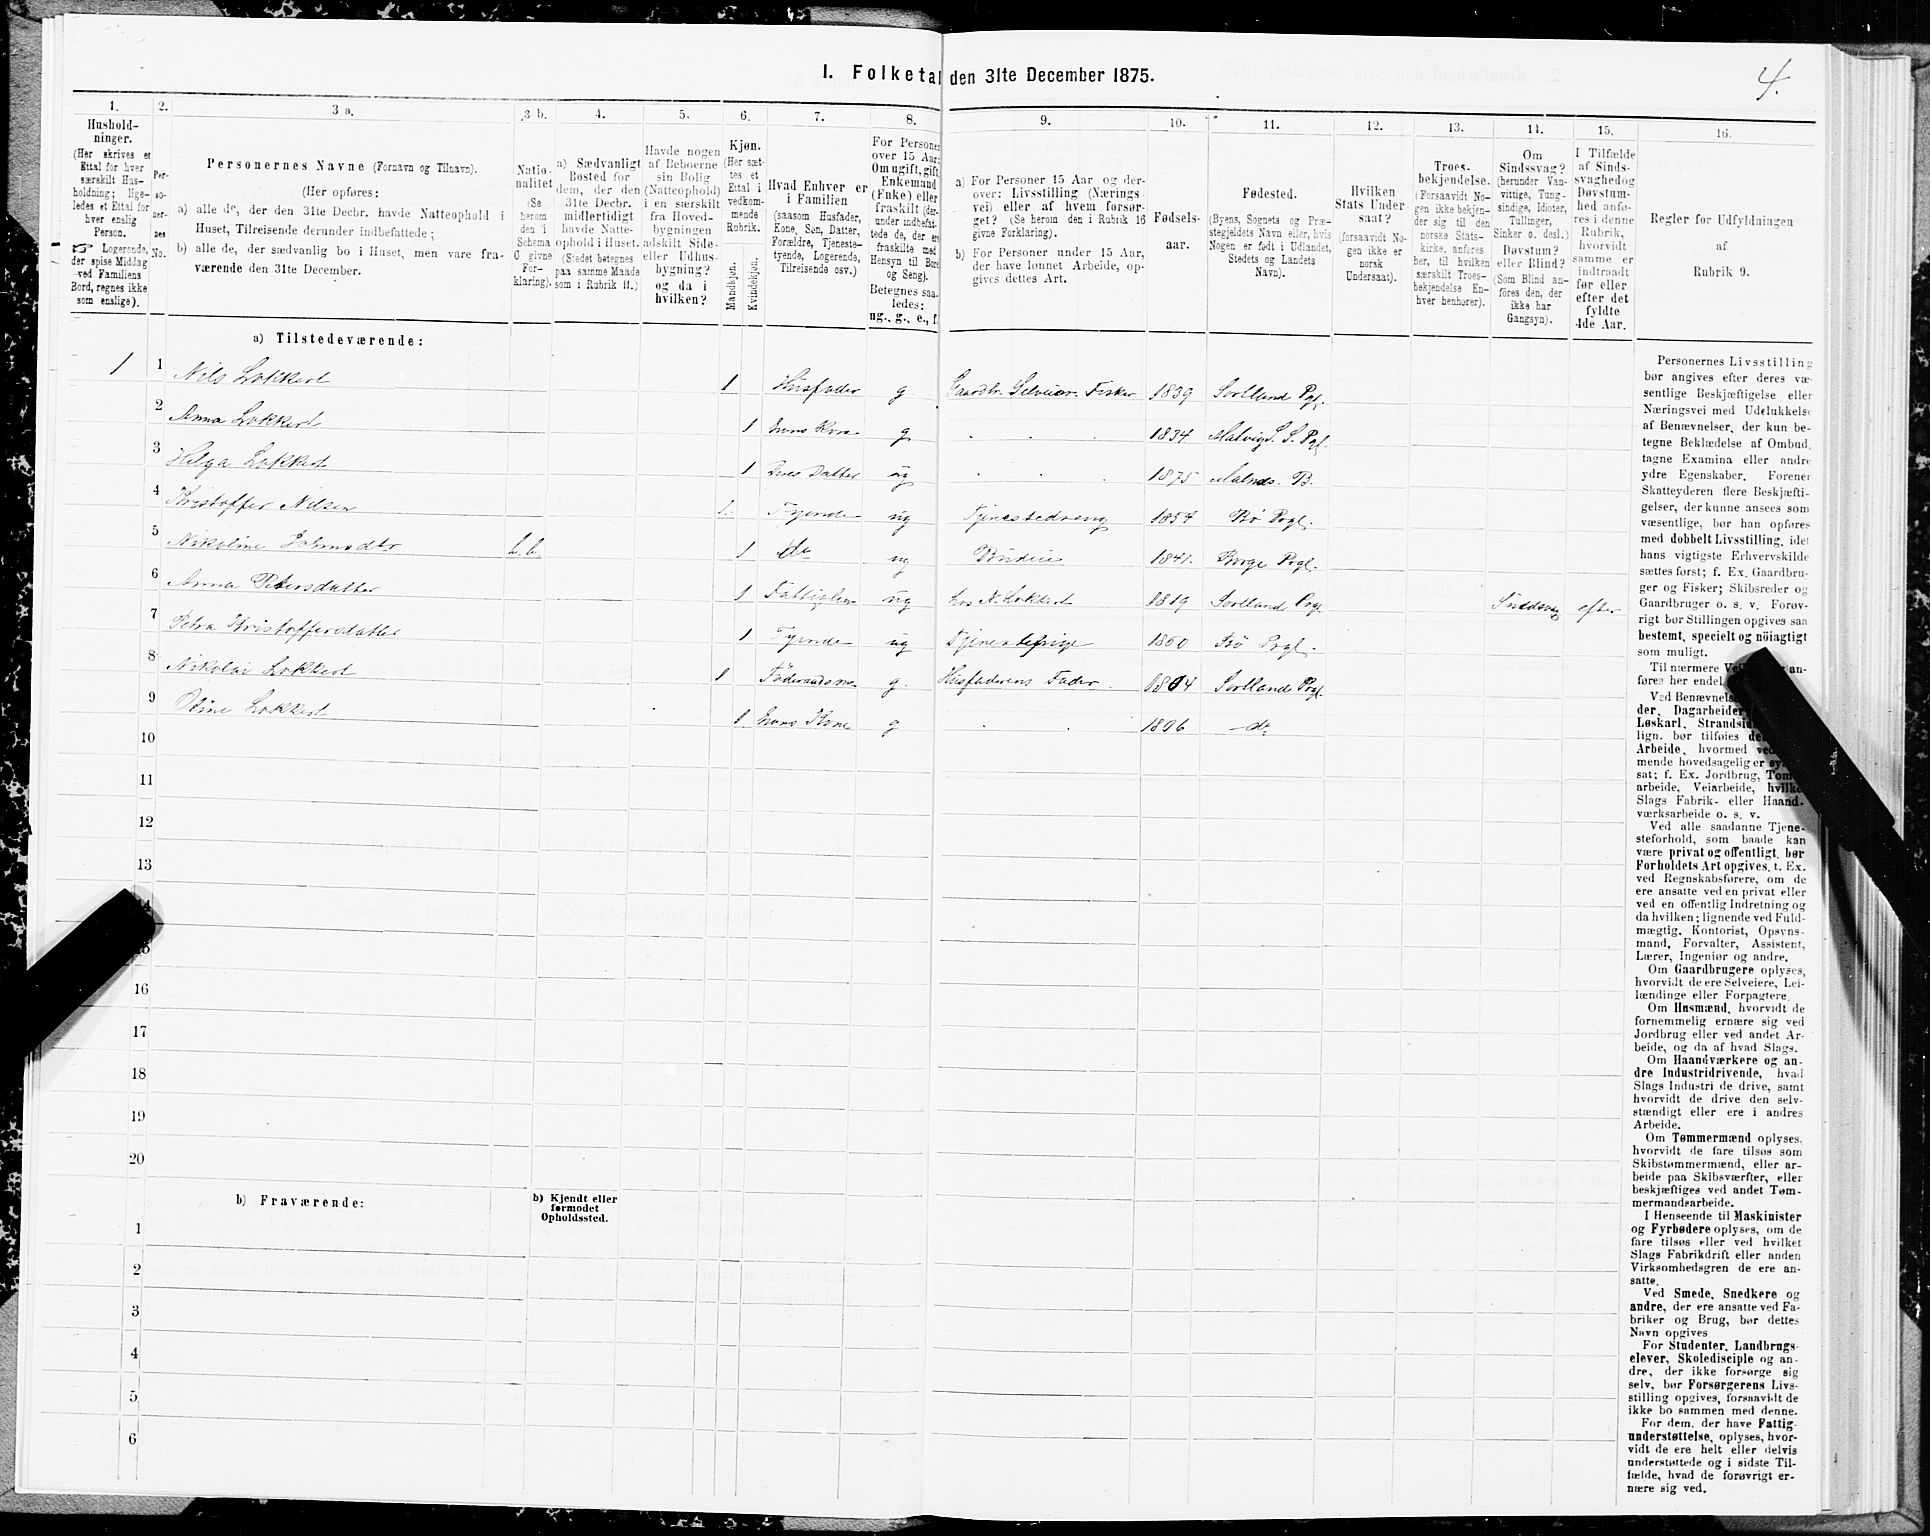 I. Folketal den 31te December 1875.
4.
1.
2.
3 a.
3 b.
4.
5.
6.
7.
8.
9.
10.
11.
12.
13.
14.
15.
16.
Hushold-
ninger.
(Her skrives et
Ettal for hver
særskilt Hus-
holdning; lige-
ledes et Ettal for
hver enslig
Person.
☞ Logerende,
der spise Middag
ved Familiens
Bord, regnes ikke
som enslige).
Per-
so-
ner-
nes
No.
Personernes Navne (Fornavn og Tilnavn).
(Her opføres:
a) alle de, der den 31te Decbr. havde Natteophold i
Huset, Tilreisende derunder indbefattede;
b) alle de, der sædvanlig bo i Huset, men vare fra-
værende den 31te December.
Natio-
nalitet
(Se
herom
den i
Schema
O givne
For-
klaring).
a) Sædvanligt
Bosted for
dem, der den
31te Decbr.
midlertidigt
havde Natte-
ophold i Huset.
(Stedet betegnes
paa samme Maade
som i Rubrik 11.)
Havde nogen
af Beboerne
sin Bolig
(Natteophold)
i en særskilt
fra Hoved-
bygningen
adskilt Side-
eller Udhus-
bygning?
og da i
hvilken?
Kjøn.
(Her sæt-
tes et
Ettal i
vedkom-
mende
Rubrik.
Mandkjøn.
Kvindekjøn.
Hvad Enhver er
i Familien
(saasom Husfader,
Kone, Søn, Datter,
Forældre, Tjeneste-
tyende, Logerende,
Tilreisende osv.)
For Personer
over 15 Aar:
Om ugift, gift,
Enkemand
(Enke) eller
fraskilt (der-
under indbefat-
tede de, der ere
fraskilte med
Hensyn til Bord
og Seng).
Betegnes saa-
ledes:
ug., g., e., f.
a) For Personer 15 Aar og der-
over: Livsstilling (Nærings-
vei) eller af hvem forsør-
get? (Se herom den i Rubrik 16
givne Forklaring).
b) For Personer under 15 Aar,
der have lønnet Arbeide, op-
gives dettes Art.
Fødsels-
aar.
Fødested.
(Byens, Sognets og Præ-
stegjeldets Navn eller, hvis
Nogen er født i Udlandet,
Stedets og Landets
Navn).
Hvilken
Stats Under-
saat?
(forsaavidt No-
gen ikke er
norsk
Undersaat).
Troes-
bekjendelse.
(Forsaavidt No-
gen ikke bekjen-
der sig til den
norske Stats-
kirke, anføres
her, til hvilken
særskilt Troes-
bekjendelse En-
hver henhører).
Om
Sindssvag?
(herunder Van-
vittige, Tung-
sindige, Idioter,
Tullinger,
Sinker o. desl.)
Døvstum?
eller Blind?
(Som Blind an-
føres den, der
ikke har
Gangsyn).
I Tilfælde
af Sinds-
svaghed og
Døvstum-
hed anfø-
res i denne
Rubrik,
hvorvidt
samme er
indtraadt
før eller
efter det
fyldte
4de Aar.
Regler for Udfyldningen
af
Rubrik 9.
a) Tilstedeværende:
1 1 Nils Lokkert 1 Husfader g. Gaardbr. Selveier. Fisker 1839 Sortland Pgl.
2 Anna Lokkert 1 hans Kone g. 1834 Malvig S. S. Pgl.
3 Helga Lokkert 1 Deres Datter ug 1875 Malnes. B.
4 Kristoffer Nilsen 1. Tyende ug Tjenestedreng 1854 Bø Prgl.
5 1 do ug Budeie 1841. Borge Prgl.
6 Anna Petersdatter 1 Fattiglem ug hos N. Lokkert 1819 Sortland Prgl Sindssvag efter
7 Petra Kristoffersdatter 1 Tyende ug Tjenestepige 1860 Bø Prgl.
8 Nikolai Lokkert 1 g. Husfaderens Fader 1804 Sortland Prgl
9 Oline Lokkert 1 hans Kone g 1806 do
10
11
12
13
14
15
16
17
18
19
20
b) Fraværende:
b) Kjendt eller
formodet
Opholdssted.
1
2
3
4
5
6
Personernes Livsstilling
bør angives efter deres væ-
sentlige Beskjæftigelse eller
Næringsvei med Udelukkelse
af Benævnelser, der kun be-
tegne Beklædelse af Ombud,
tagne Examina eller andre
ydre Egenskaber. Forener
Skatteyderen flere Beskjæfti-
gelser, der kunne ansees som
væsentlige, bør han opføres
med dobbelt Livsstilling, idet
hans vigtigste Erhvervskilde
sættes først; f. Ex. Gaardbru-
ger og Fisker; Skibsreder og
Gaardbruger o. s. v. Forøv-
rigt bør Stillingen opgives saa
bestemt, specielt og nöiagtigt
som muligt.
Til nærmere an-
føres her endel
Ved Benævnel
der, Dagarbeider
Løskarl, Strandsid
lign. bør tilføies de
Arbeide, hvormed ved
mende hovedsagelig er sys
sat; f. Ex. Jordbrug, Tøm
arbeide, Veiarbeide, hvilke
Slags Fabrik- eller Haand-
værksarbeide o. s. v.
Ved alle saadanne Tjene-
steforhold, som baade kan
være privat og offentligt, bør
Forholdets Art opgives, t. Ex.
ved Regnskabsførere, om de
ere ansatte ved en privat eller
ved en offentlig Indretning og
da hvilken; lignende ved Fuld-
mægtig, Kontorist, Opsyns-
mand, Forvalter, Assistent,
Lærer, Ingeniør og andre.
Om Gaardbrugere oplyses,
hvorvidt de ere Selveiere, Lei-
lændinge eller Forpagtere.
Om Husmænd, hvorvidt de
fornemmelig ernære sig ved
Jordbrug eller ved andet Ar-
beide, og da af hvad Slags.
Om Haandværkere og an-
dre Industridrivende, hvad
Slags Industri de drive, samt
hvorvidt de drive den selv-
stændigt eller ere i andres
Arbeide.
Om Tømmermænd oplyses,
hvorvidt de fare tilsøs som
Skibstømmermænd, eller ar-
beide paa Skibsværfter, eller
beskjæftiges ved andet Tøm-
mermandsarbeide.
I Henseende til Maskinister
og Fyrbødere oplyses, om de
fare tilsøs eller ved hvilket
Slags Fabrikdrift eller anden
Virksomhedsgren de ere an-
satte.
Ved Smede, Snedkere og
andre, der ere ansatte ved Fa-
briker og Brug, bør dettes
Navn opgives
For Studenter, Landbrugs-
elever, Skoledisciple og an-
dre, der ikke forsørge sig
selv, bør Forsørgerens Livs-
stilling opgives, forsaavidt de
ikke bo sammen med denne.
For dem, der have Fattig-
understøttelse, oplyses, hvor-
vidt de ere helt eller delvis
understøttede og i sidste Til-
fælde, hvad de forøvrigt er-
nære sig ved.